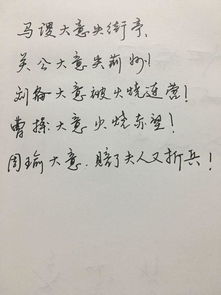 马谡大意失街亭、
关公大意失荆州！
刘备大意被火烧连营！
曹操大意火烧赤壁！
周瑜大意、赔了夫人又折兵！